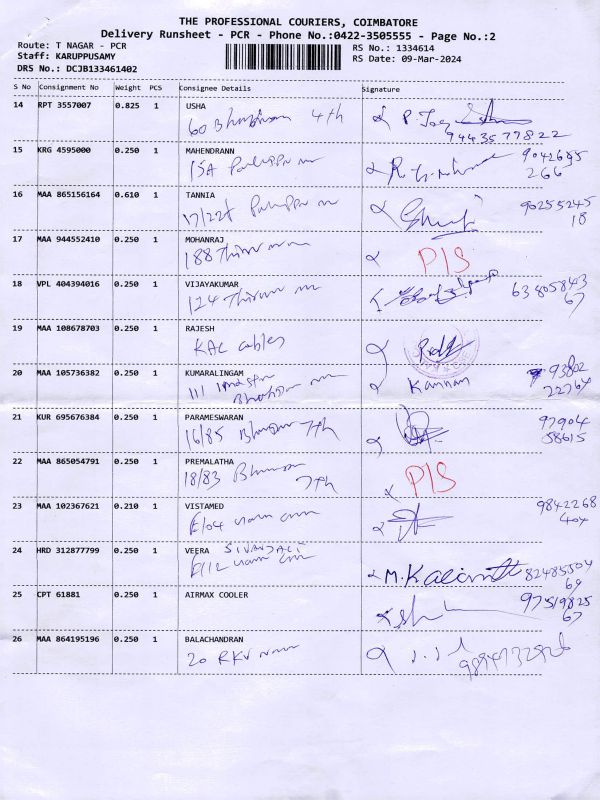 THE PROFESSIONAL COURIERS, COIMBATORE
Delivery Runsheet - PCR - Phone No.:0422-3505555 - Page No.:2
Route: T NAGAR - PCR
RS No.: 1334614
Staff: KARUPPUSAMY
RS Date: 09-Mar-2024
DRS No.: DCJB133461402
S No Consignment No Weight PCS Consignee Details Signature
14 RPT 3557007 0.825 1 USHA
60 4th
9443577822
15 KRG 4595000 0.250 1 MAHENDRANN
15A
266
16 MAA 865156164 0.610 1 TANNIA
90255245
17/22f
18
17 MAA 944552410 0.250 1 MOHANRAJ
188
P/S
18 VPL 404394016 0.250 1 VIJAYAKUMAR
124
63805843
67
19 MAA 108678703 0.250 1 RAJESH
KAC cables
20 MAA 105736382 0.250 1 KUMARALINGAM
93802
111
Kannan
22764
21 KUR 695676384 0.250 1 PARAMESWARAN
97904
16/85 7th
58615
22 MAA 865054791 0.250 1 PREMALATHA
18/83
7th
P/S
23 MAA 102367621 0.210 1 VISTAMED
9842268
E/04
404
24 HRD 312877799 0.250 1 VEERA
E/12
82485504
69
25 CPT 61881 0.250 1 AIRMAX COOLER
97519825
67
26 MAA 864195196 0.250 1 BALACHANDRAN
20 RKV